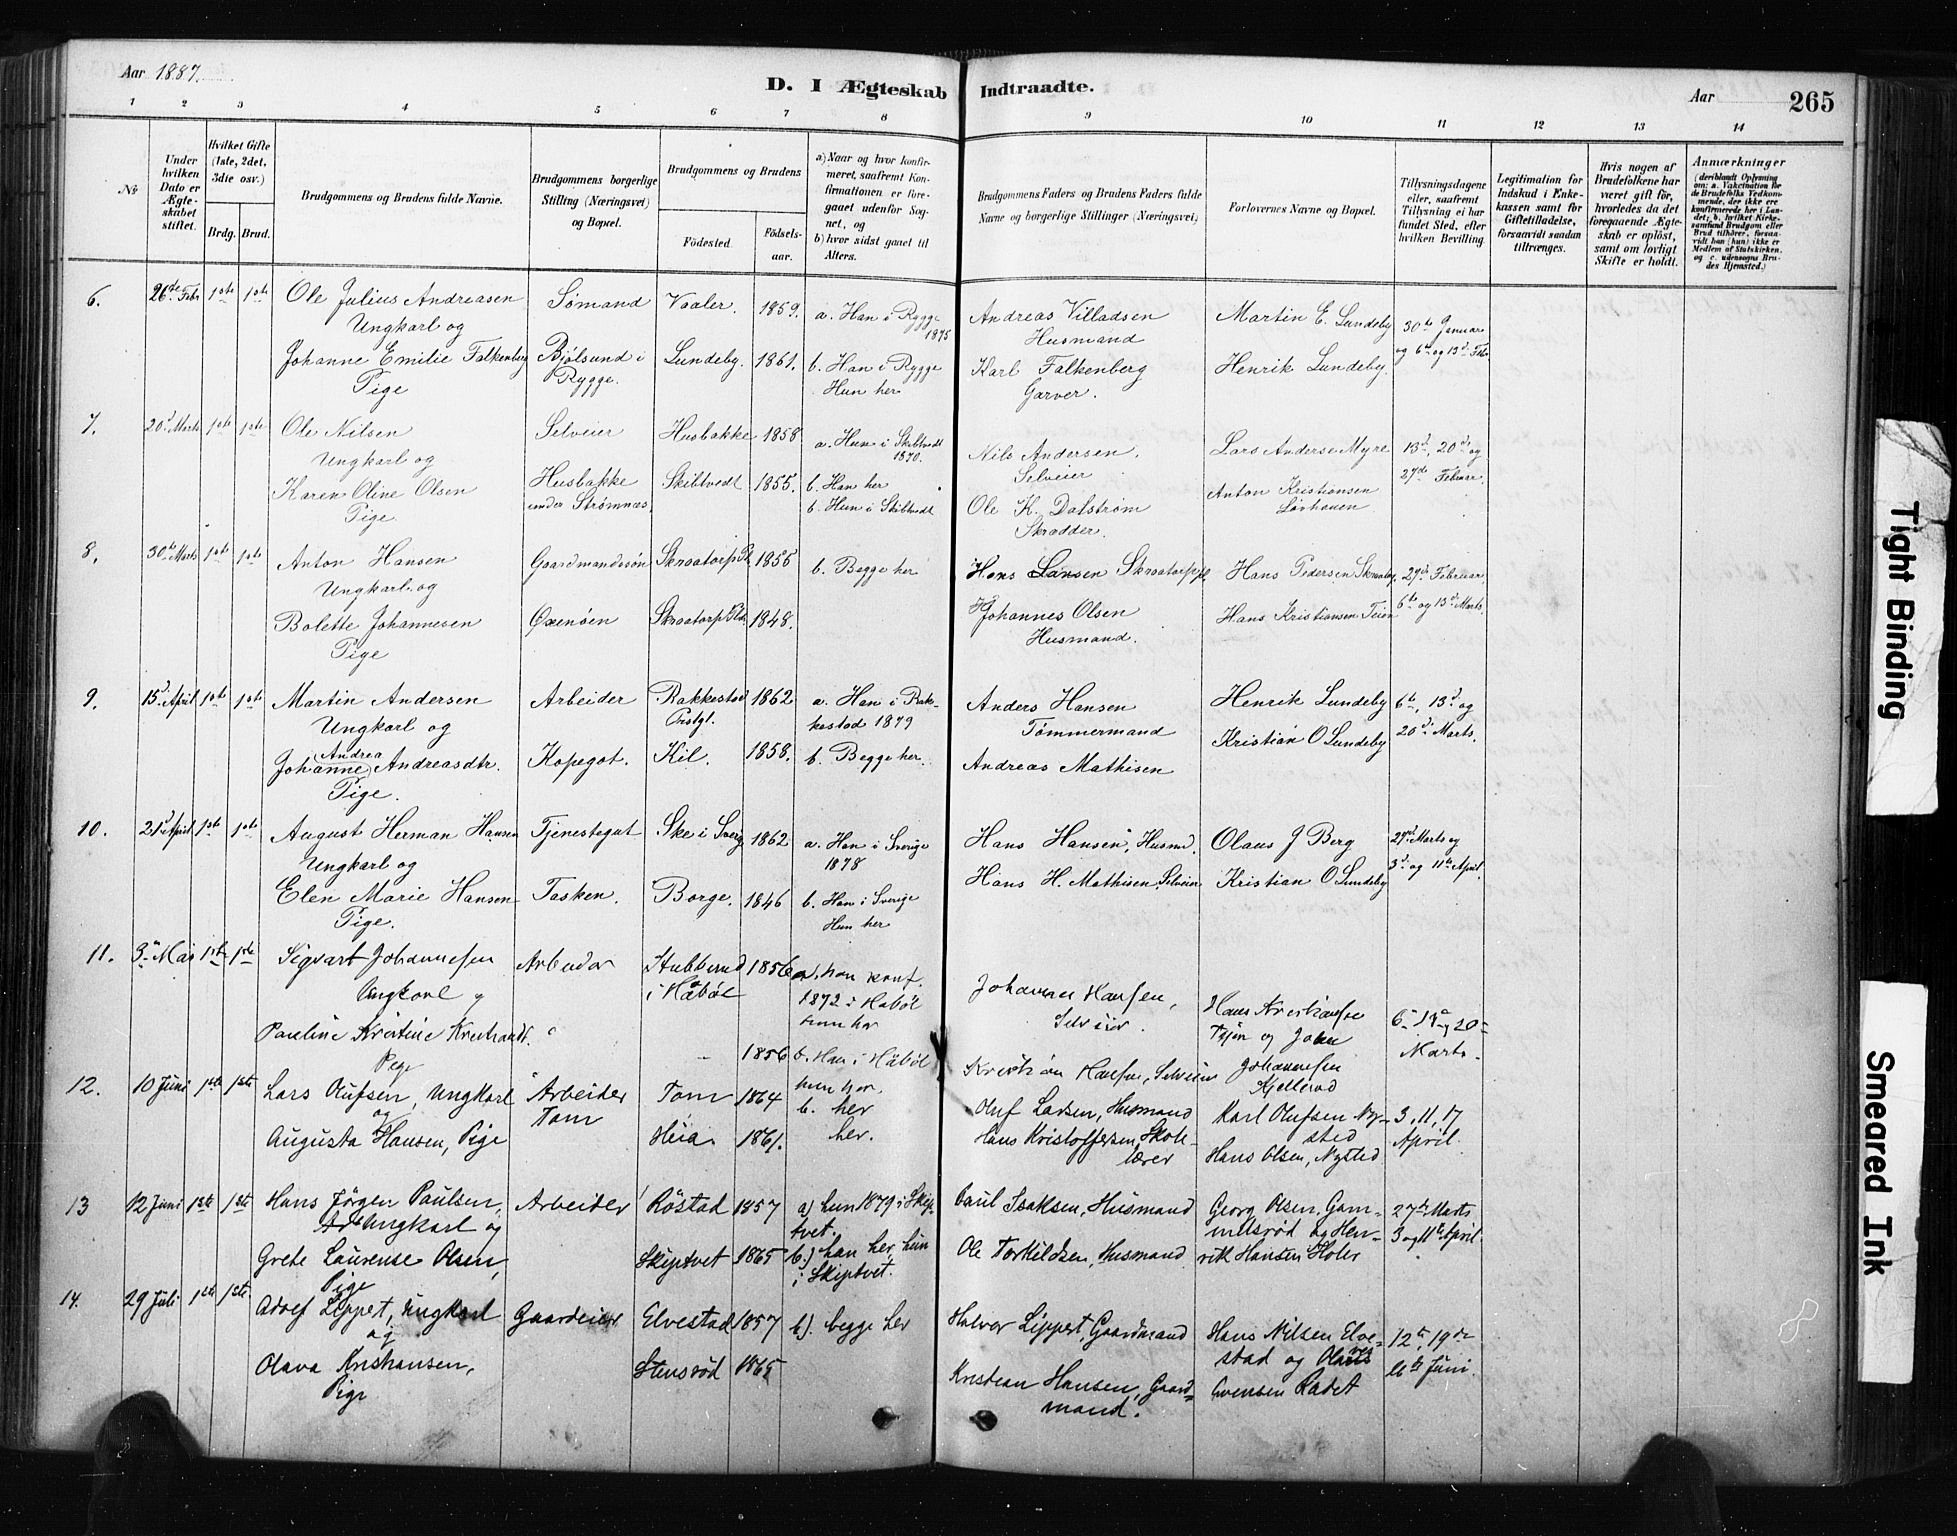 Aar 1887.
D. I Ægteskab Indtraadte.
Aar 265
1 2 3 4 5 6 7 8 9 10 11 12 13 14
№
Under hvilken Dato er Ægteskabet stiftet.
Hvilket Gifte (1ste, 2det, 3die osv.)
Brdg. Brud.
Brudgommens og Brudens fulde Navne.
Brudgommens borgerlige Stilling (Næringsvei) og Bopæl.
Brudgommens og Brudens
Fødested. Fødselsaar.
a) Naar og hvor konfirmeret, saafremt Konfirmationen er foregaaet udenfor Sognet, og
b) hvor sidst gaaet til Alters.
Brudgommens Faders og Brudens Faders fulde Navne og borgerlige Stillinger (Næringsvei)
Forlovernes Navne og Bopæl.
Tillysningsdagene eller, saafremt Tillysning ei har fundet Sted, efter hvilken Bevilling.
Legitimation for Indskud i Enkekassen samt for Giftetilladelse, forsaavidt saadan tiltrænges.
Hvis nogen af Brudefolkene har været gift før, hvorledes da det foregaaende Ægteskab er opløst, samt om lovligt Skifte er holdt.
Anmærkninger (deriblandt Oplysning om: a. Vakcination for de Brudefolks Vedkommende, der ikke ere konfirmerede her i Landet; b. hvilket Kirkesamfund Brudgom eller Brud tilhører, forsaavidt han (hun) ikke er Medlem af Statskirken, og c. udensogns Brudes Hjemsted.)
6. 26de Febr 1ste 1ste Ole Julius Andreasen Sømand Vaaler. 1859. a. Han i Rygge 1875 Andreas Villadsen Martin E. Lundeby 30te Januar
Ungkarl og Husmand og 6te og 13de Feb.
Johanne Emilie Falkenberg Bjølsund i Lundeby. 1861. b. Han i Rygge Karl Falkenberg Henrik Lundeby.
Pige Rygge. Hun her Garver.
7. 20de Marts 1ste 1ste Ole Nilsen Selveier Husbakke 1858 a. Hun i Skibtvedt 1870. Nils Andersen. Lars Anderse Myre 13de, 20de og
Ungkarl og Selveier 27de Februar.
Karen Oline Olsen Husbakke Skibtvedt 1855. b. Han her Ole K. Dalstrøm Anton Kristiansen
Pige. under Strømnæs. b. Hun i Skibtvedt Skrædder. Løvhauen
8. 30te Marts 1ste 1ste Anton Hansen Gaardmandssøn Skraatorp 1855 b. Begge her Hans Larsen Skraatorp Hans Pedersen 27de Februar
Ungkarl og 6te og 13de Marts.
Bolette Johannesen Oxenøen Skraatorp 1848. Johannes Olsen Hans Kristiansen Teien
Pige Husmand.
9. 15de April 1ste 1ste Martin Andersen Arbeider Rakkestad 1862 a. Han i Rak- Anders Hansen Henrik Lundeby 6te, 13de og
Ungkarl og Prstgl. kestad 1879 Tømmermand 20de Marts.
Andrea
Johanne Andreasdtr. Kopegot. Kil. 1858. b. Begge her. Andreas Mathisen Kristian O Lundeby
Pige.
10. 21de April 1ste 1ste August Herman Hansen Tjenestegut Ske i Sverg 1862 a. Han i Sverige 1878 Hans Hansen, Husmd. Olaus J Berg 27de Marts og
Ungkarl og 3de og 11te April.
Elen Marie Hansen Tasken. Borge. 1846 b. Han i Sverige Hans H. Mathisen, Selveier Kristian O Lundeby
Pige. Hun her
11. 3de Mai 1ste 1ste Sigvart Johannesen Arbeider Stubberud 1856 a. han konf. Johannes Hansen, Hans Kristiansen
Ungkarl og i Haabøl 1872 i Habøl Selveier. Tejen og Johan 6te 13de og 20de
hun her Marts.
Pauline Kristine Kristiansdt. 1856 b. Han i Håbøl Kristian Hansen, Selveier Johannesen
Pige hun her. Kjellerød
12. 10 Juni 1ste 1ste Lars Olufsen, Ungkarl Arbeider Tom 1864 b. her Oluf Larsen, Husmand Karl Olufsen Ny- 3, 11, 17
og Tom sted April.
Augusta Hansen, Pige Heia. 1861. her. Hans Kristoffersen, Skole- Hans Olsen, Nysted
lærer
13 12 Juni 1ste 1ste Hans Jørgen Paulsen, Arbeider Røstad 1857 a) hun 1879 i Skip- Paul Isaksen, Husmand Georg Olsen, Gam- 27de Marts
Ungkarl og tvet. melsrød og Hen- 3 og 11te April.
Grete Laurense Olsen, Skiptvet 1865 b.) han her, hun Ole Torkildsen, Husmand rik Hansen Holer
Pige i Skiptvet.
14. 29 Juli 1ste 1ste Adolf Lippert, Ungkarl Gaardeier Elvestad 1857 b). begge her Halvor Lippert, Gaardmand Hans Nilsen Elve- 12te, 19de
og stad og Olaves 26te Juni.
Olava Kristiansen, Stensrød 1865 Kristian Hansen, Gaard- Svensen Radet
Pige mand.
Tight Binding
Smeared Ink